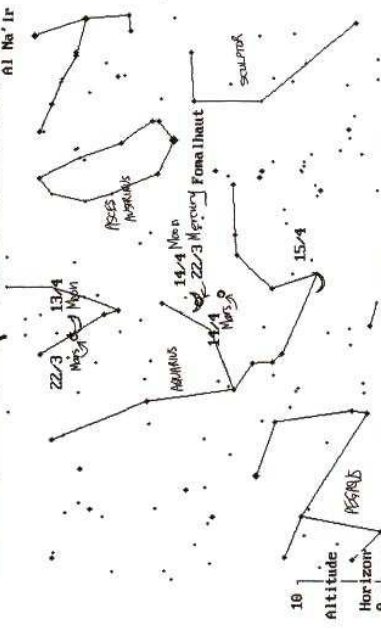 Al Na'Ir
SCULPTOR
PISCES
AUSTRINUS
Fomalhaut
14/4 Moon
22/3 Mercury
14/4
Mars
13/4
Moon
22/3
Mars
15/4
AQUARIUS
PEGASUS
10
Altitude
Horizon
0